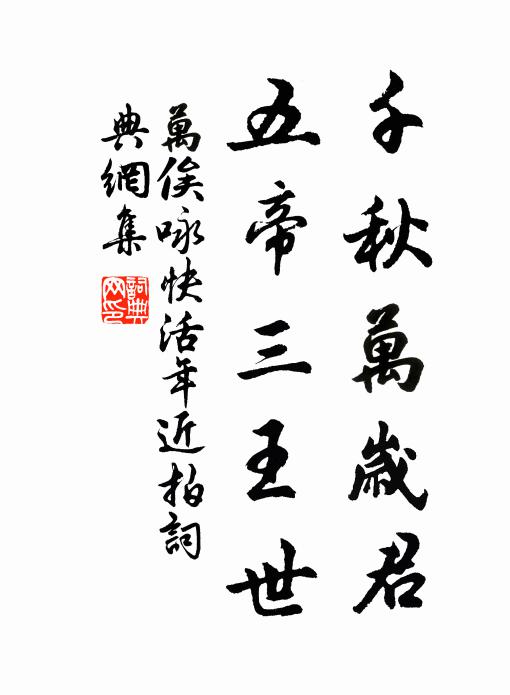 千秋萬歲君
五帝三王世
萬俟咏快活年近拍詞
典網集
詞典
网印